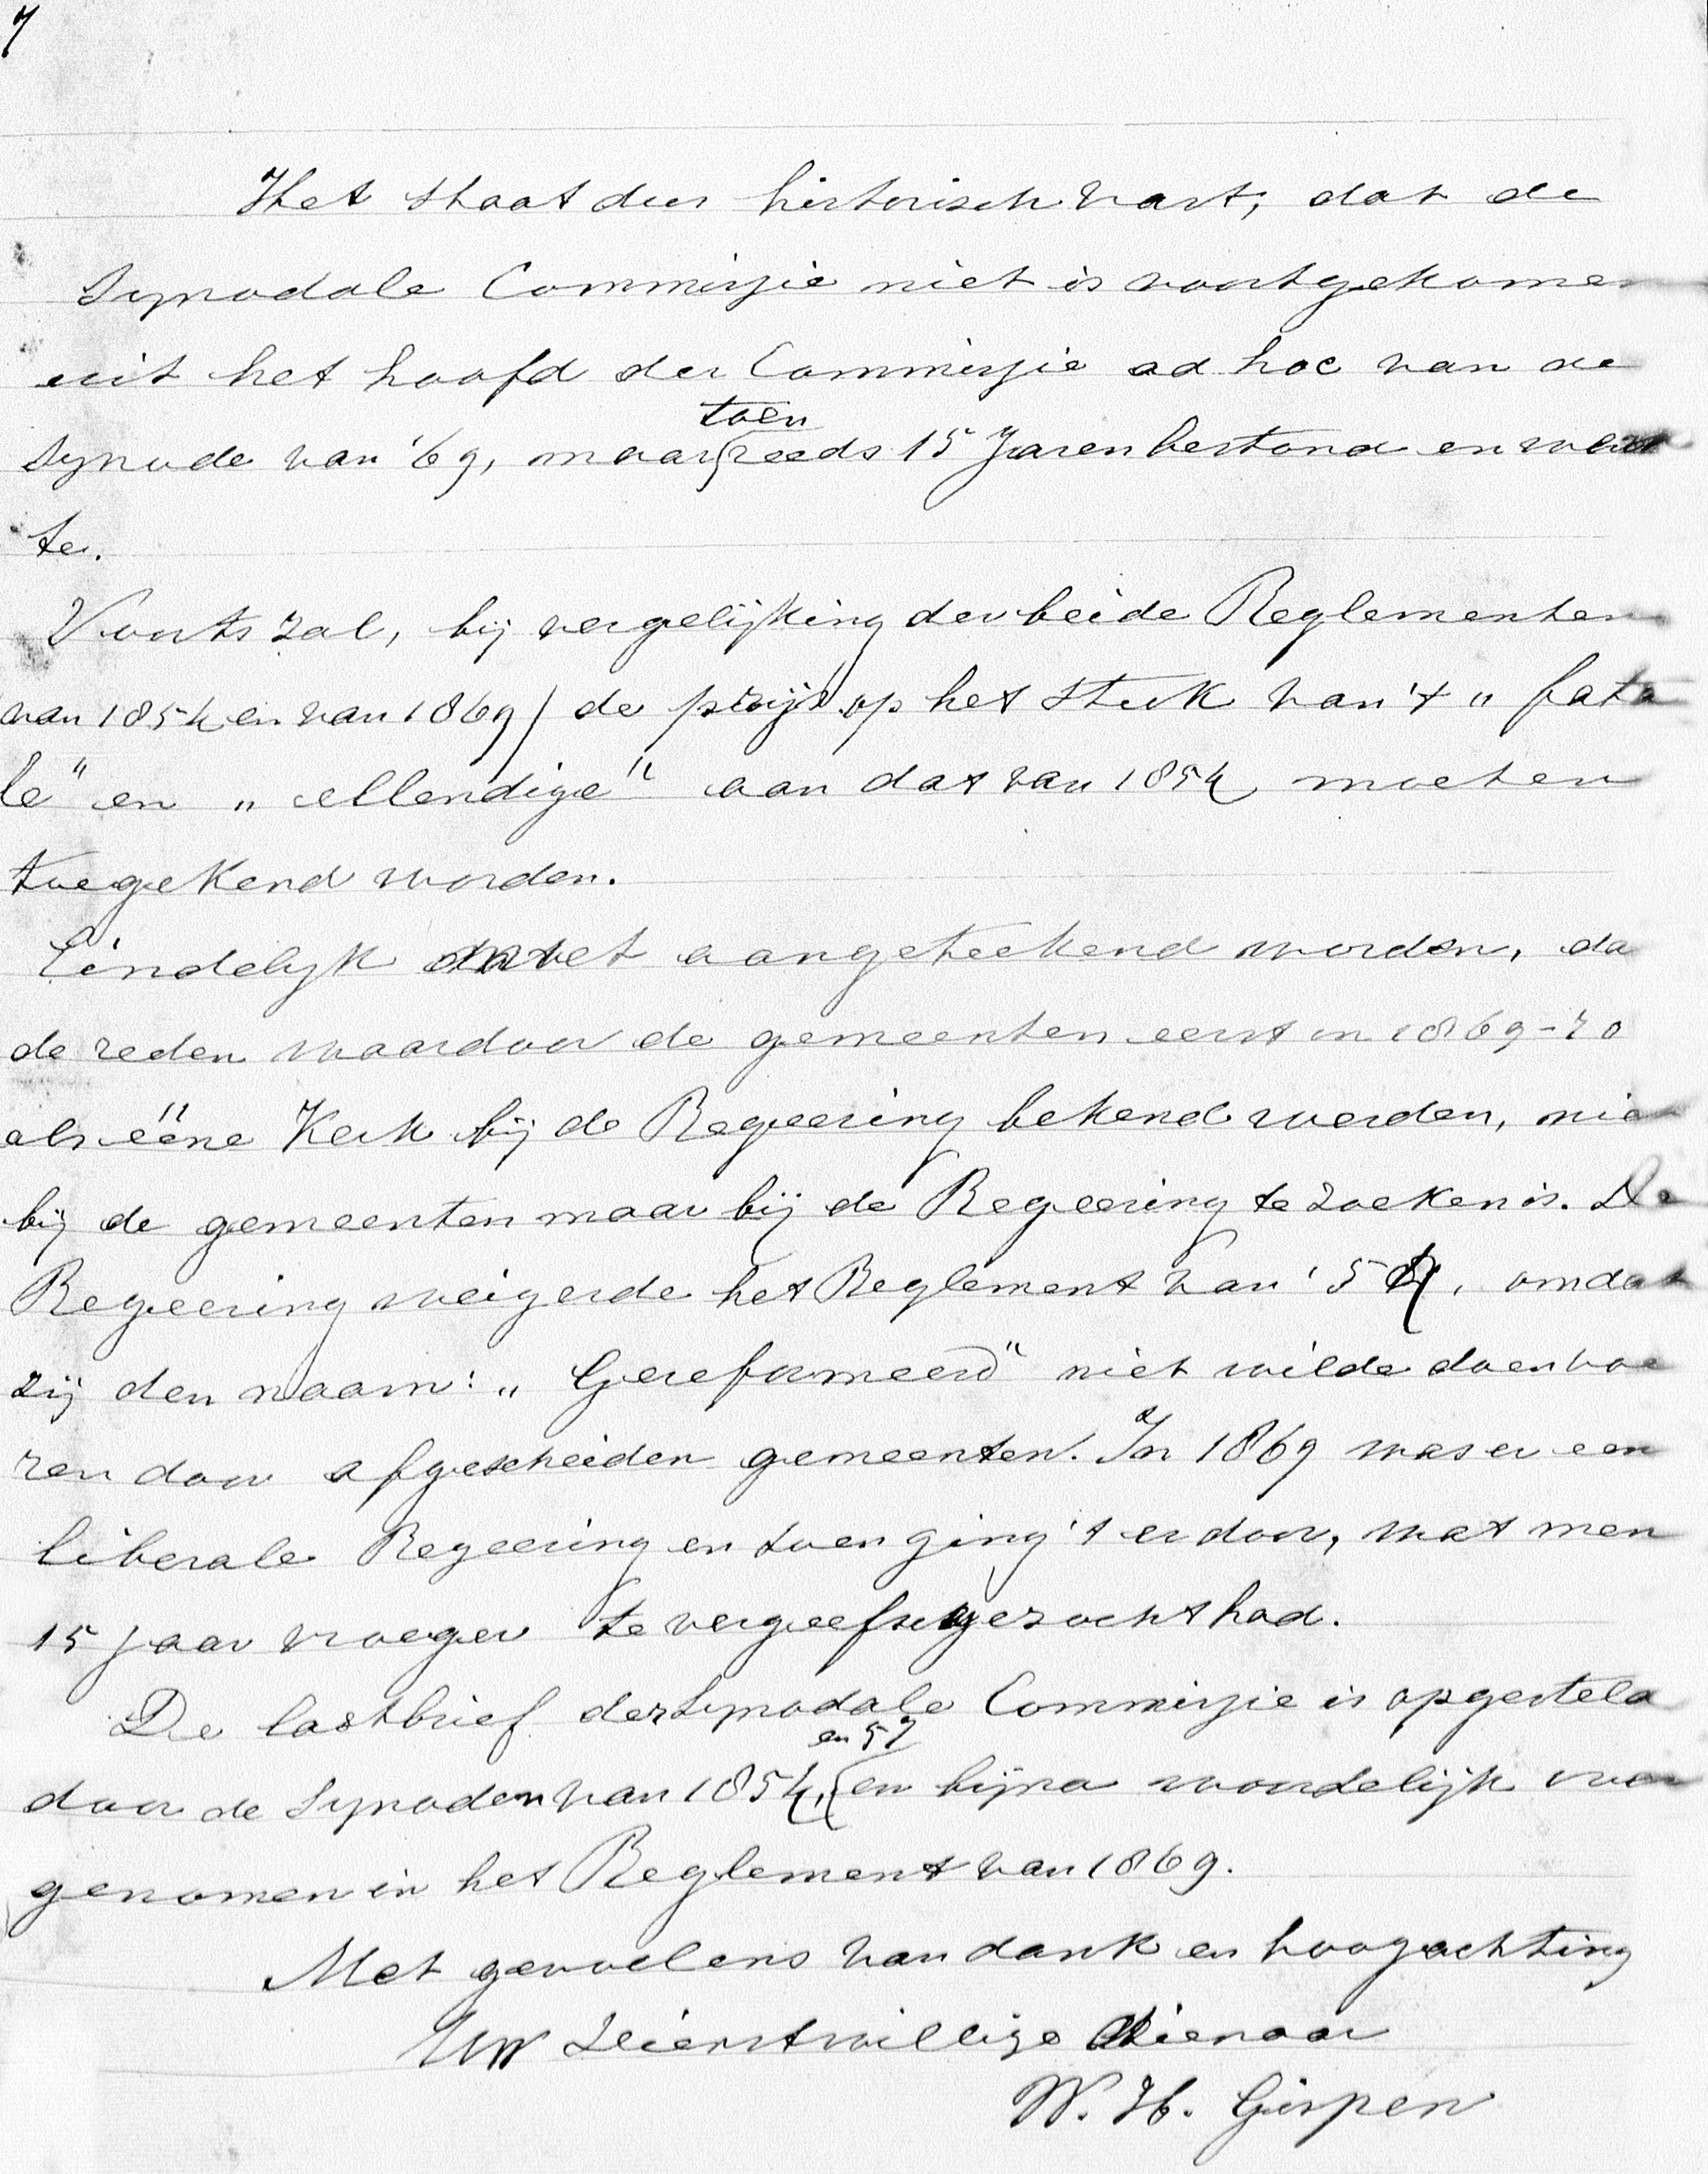 7
Het staat dus historisch vast, dat de
Synodale Commissie niet is voortgekomen
uit het hoofd der Commissie ad hoc van de
toen
Synode van '69, maar reeds 15 Jaren bestond en werk
te.
Voorts zal, bij vergelijking der beide Reglementen
van 1854 en van 1869) de prijs op het stuk van 't „fata
le" en „ellendige" aan dat van 1854 moeten
toegekend worden.
Eindelijk moet aangeteekend worden, da
de reden waardoor de gemeenten eerst in 1869-70
als ééne Kerk bij de Regeering bekend werden, nie
bij de gemeenten maar bij de Regeering te zoeken is. De
Regeering weigerde het Reglement van '54, omdat
zij den naam: „Gereformeerd" niet wilde doen voe
ren door afgescheiden gemeenten. In 1869 was er een
liberale Regeering en toen ging 't er door, wat men
15 jaar vroeger te vergeefs gezocht had.
De lastbrief der Synodale Commissie is opgesteld
en 57
door de Synoden van 1854, en bijna woordelijk over
genomen in het Reglement van 1869.
Met gevoelens van dank en hoogachting
Uw Dienstwillige Dienaar
W. H. Gispen